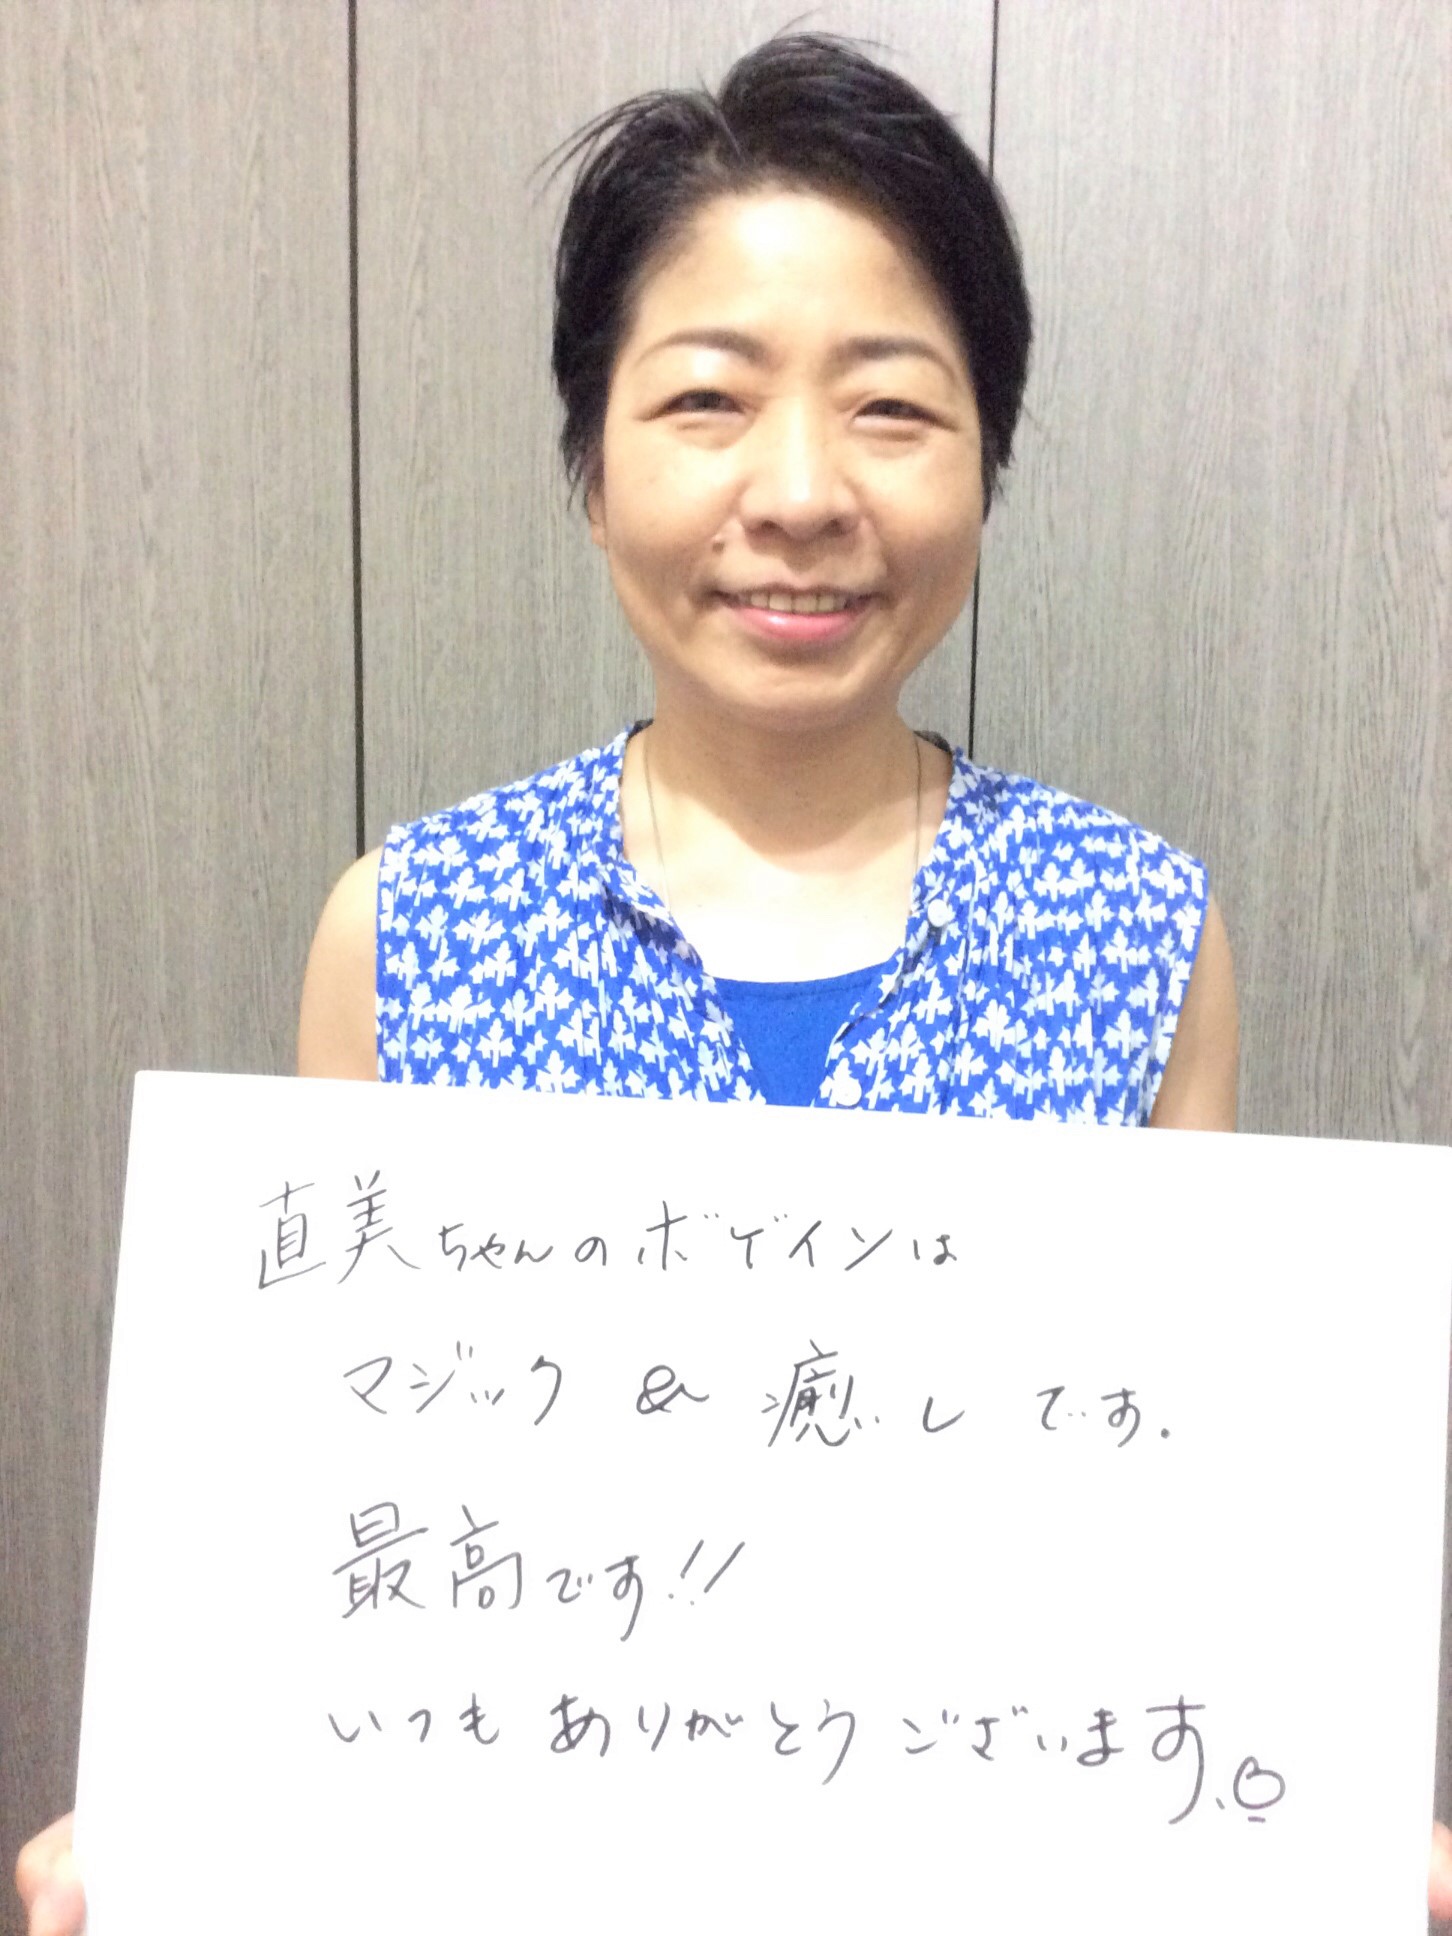 直美ちゃんのボゲインは
マジック & 癒し です.
最高です!!
いつも ありがとう ございます.